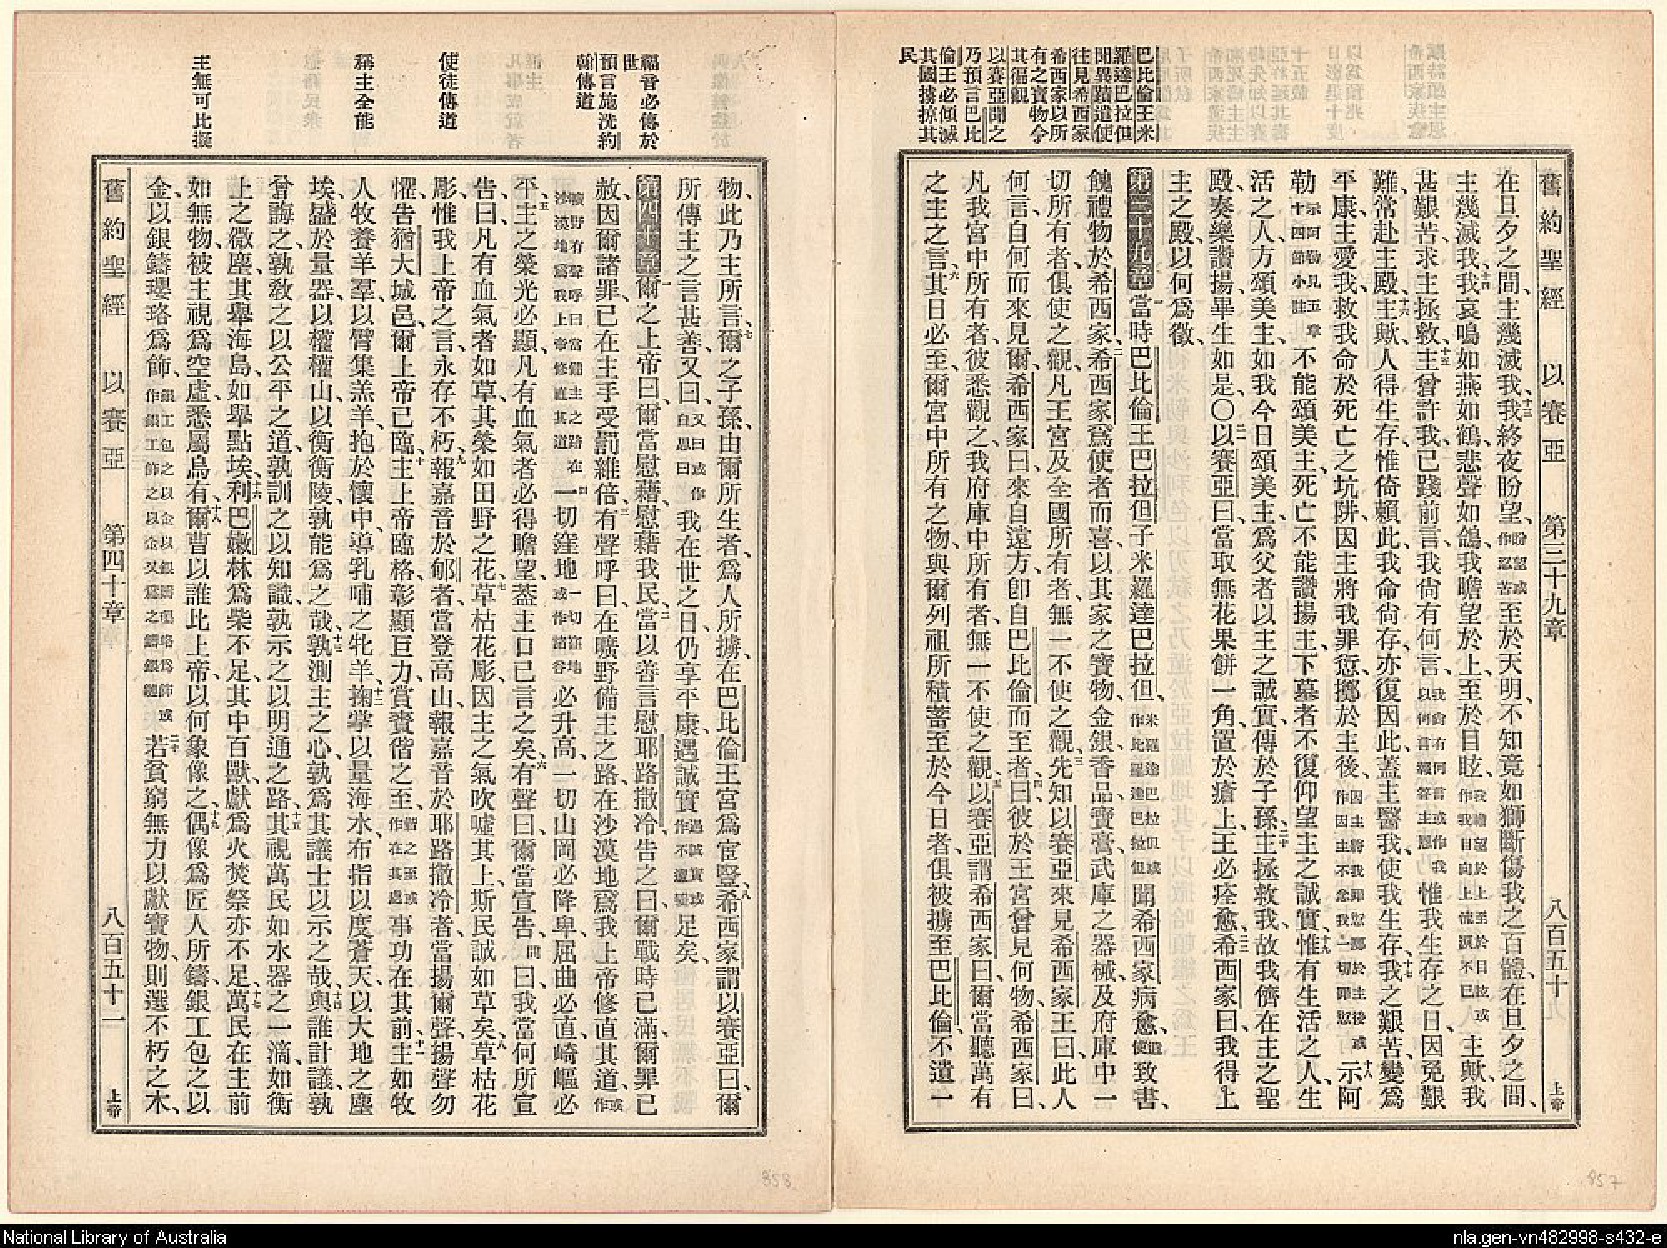 舊約聖經 以賽亞 第三十九章 八百五十 上帝
在旦夕之間、主幾滅我、我終夜盼望、至於天明、不知竟如獅斷傷我之百體、在旦夕之間、
主幾滅我、我哀鳴如燕如鶴、悲聲如鴿、我瞻望於上、至於目眩、主歟、我
甚艱苦、求主拯救、主曾許我、已踐前言、我尙有何言、惟我生存之日、因冤艱
難、常赴主殿、主歟、人得生存、惟倚賴此、我命尙存、亦復因此、蓋主醫我、使我生存、我之艱苦、變爲
平康、主愛我、救我命於死亡之坑阱、因主將我罪愆、擲於主後、示阿
勒不能頌美主、死亡不能讚揚主、下墓者不復仰望主之誠實、惟有生活之人、生
活之人、方頌美主、如我今日頌美主、爲父者以主之誠實、傳於子孫、主拯救我、故我儕在主之聖
殿、奏樂讚揚、畢生如是、〇以賽亞曰、當取無花果餅一角、置於瘡上、王必痊愈、希西家曰、我得上
主之殿、以何爲徵、
第三十九章 當時巴比倫王巴拉但子米羅達巴拉但、聞希西家病愈、遣使致書、
餽禮物於希西家、希西家爲使者而喜、以其家之寶物、金銀、香品、寶膏、武庫之器械、及府庫中一
切所有者、俱使之觀、凡王宮及全國所有者、無一不使之觀、先知以賽亞來見希西家王曰、此人
何言、自何而來見爾、希西家曰、來自遠方、卽自巴比倫而至者、曰、彼於王宮曾見何物、希西家曰、
凡我宮中所有者、彼悉觀之、我府庫中所有者、無一不使之觀、以賽亞謂希西家曰、爾當聽萬有
之主之言、其日必至、爾宮中所有之物、與爾列祖所積蓄至於今日者、俱被擄至巴比倫、不遺一
巴比倫王米
羅達巴拉但
聞異蹟遣使
往見希西家
希西家以所
有之寶物令
其徧觀
以賽亞聞之
乃預言巴比
倫王必傾滅
其國擄掠其
民
物、此乃主所言、爾之子孫、由爾所生者、爲人所擄、在巴比倫王宮爲宦豎、希西家謂以賽亞曰、爾
所傳主之言甚善、又曰、我在世之日、仍享平康、遇誠實足矣、
第四十章 爾之上帝曰、爾當慰藉、慰藉我民、當以善言慰耶路撒冷、告之曰、爾戰時已滿、爾罪已
赦、因爾諸罪、已在主手受罰維倍、有聲呼曰、在曠野備主之路、在沙漠地爲我上帝修直其道、
一切窪地必升高、一切山岡必降卑、屈曲必直、崎嶇必
平、主之榮光必顯、凡有血氣者必得瞻望、蓋主口已言之矣、有聲曰、爾當宣告、曰、我當何所宣
告、曰、凡有血氣者如草、其榮如田野之花、草枯花彫、因主之氣吹噓其上、斯民誠如草矣、草枯花
彫、惟我上帝之言、永存不朽、報嘉音於郇者、當登高山、報嘉音於耶路撒冷者、當揚爾聲、揚聲勿
懼、告猶大城邑、爾上帝已臨、主上帝臨格、彰顯巨力、賞賚偕之至、事功在其前、主如牧
人牧養羊羣、以臂集羔羊、抱於懷中、導乳哺之牝羊、掬掌以量海水、布指以度蒼天、以大地之塵
埃、盛於量器、以權權山、以衡衡陵、孰能爲之哉、孰測主之心、孰爲其議士以示之哉、與誰計議、孰
曾誨之、孰敎之以公平之道、孰訓之以知識、孰示之以明通之路、其視萬民、如水器之一滴、如衡
上之微塵、其舉海島、如舉點埃、利巴嫩林爲柴不足、其中百獸、獻爲火焚祭亦不足、萬民在主前
如無物、被主視爲空虛、悉屬烏有、爾曹以誰比上帝、以何象像之、偶像爲匠人所鑄、銀工包之以
金、以銀鑄瓔珞爲飾、若貧窮無力以獻寶物、則選不朽之木、
舊約聖經 以賽亞 第四十章 八百五十一 上帝
福音必傳於
世
預言施洗約
翰傳道
使徒傳道
稱主全能
主無可比擬
858
857
National Library of Australia
nla.gen-vn482998-s432-e